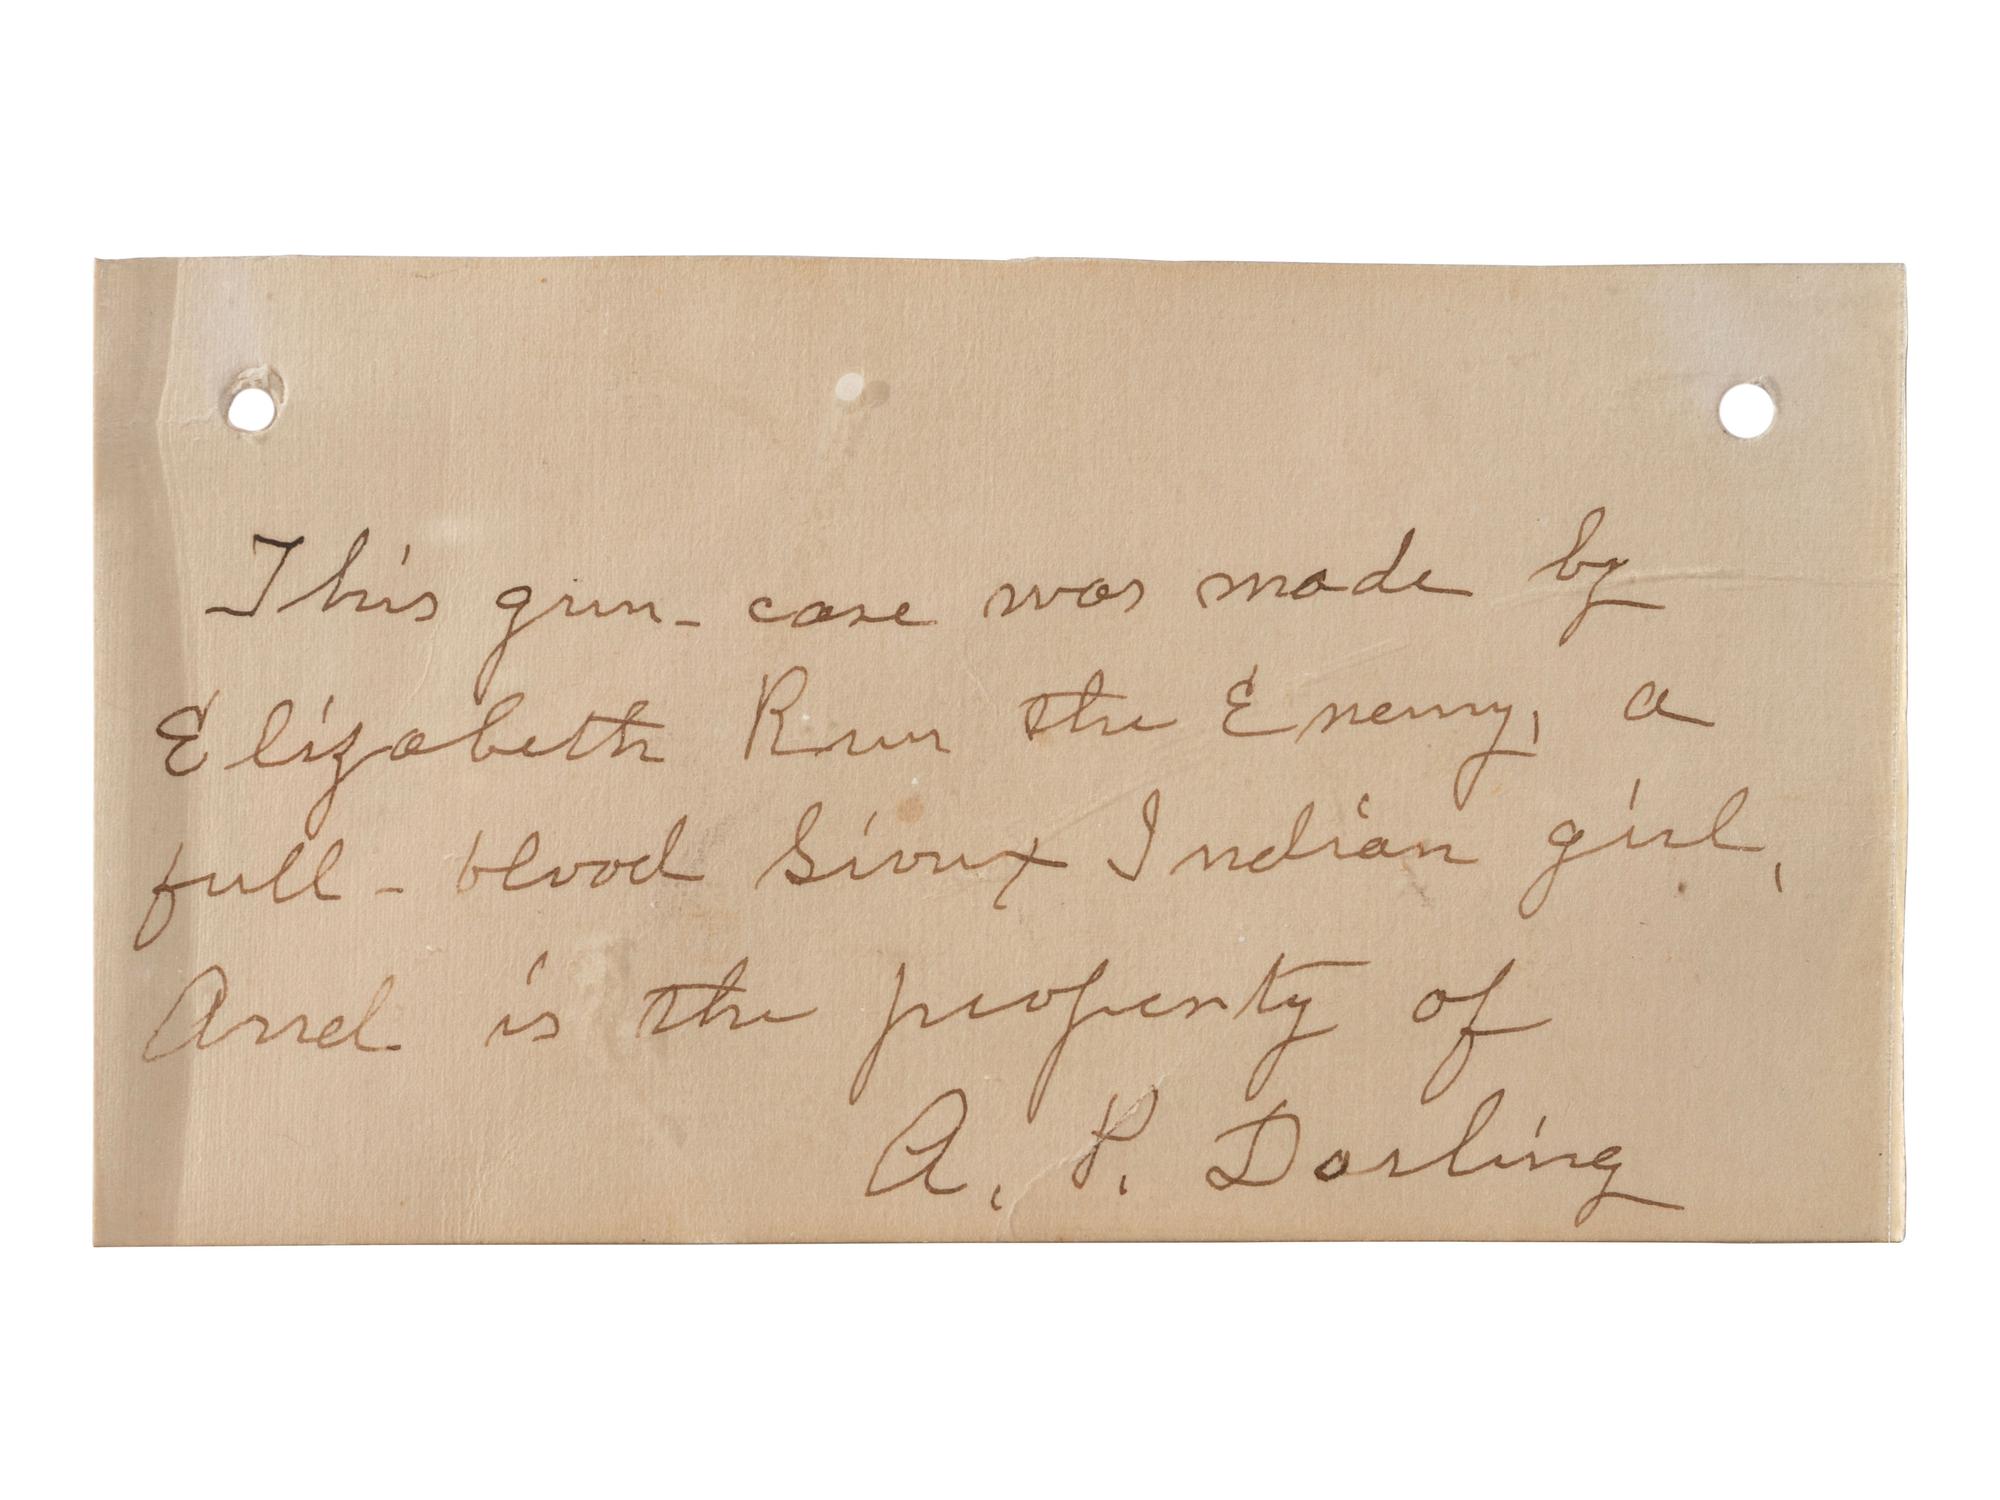 This gun-case was made by
Elizabeth Run the Enemy, a
full-blood Sioux Indian girl,
And is the property of
A. P. Darling